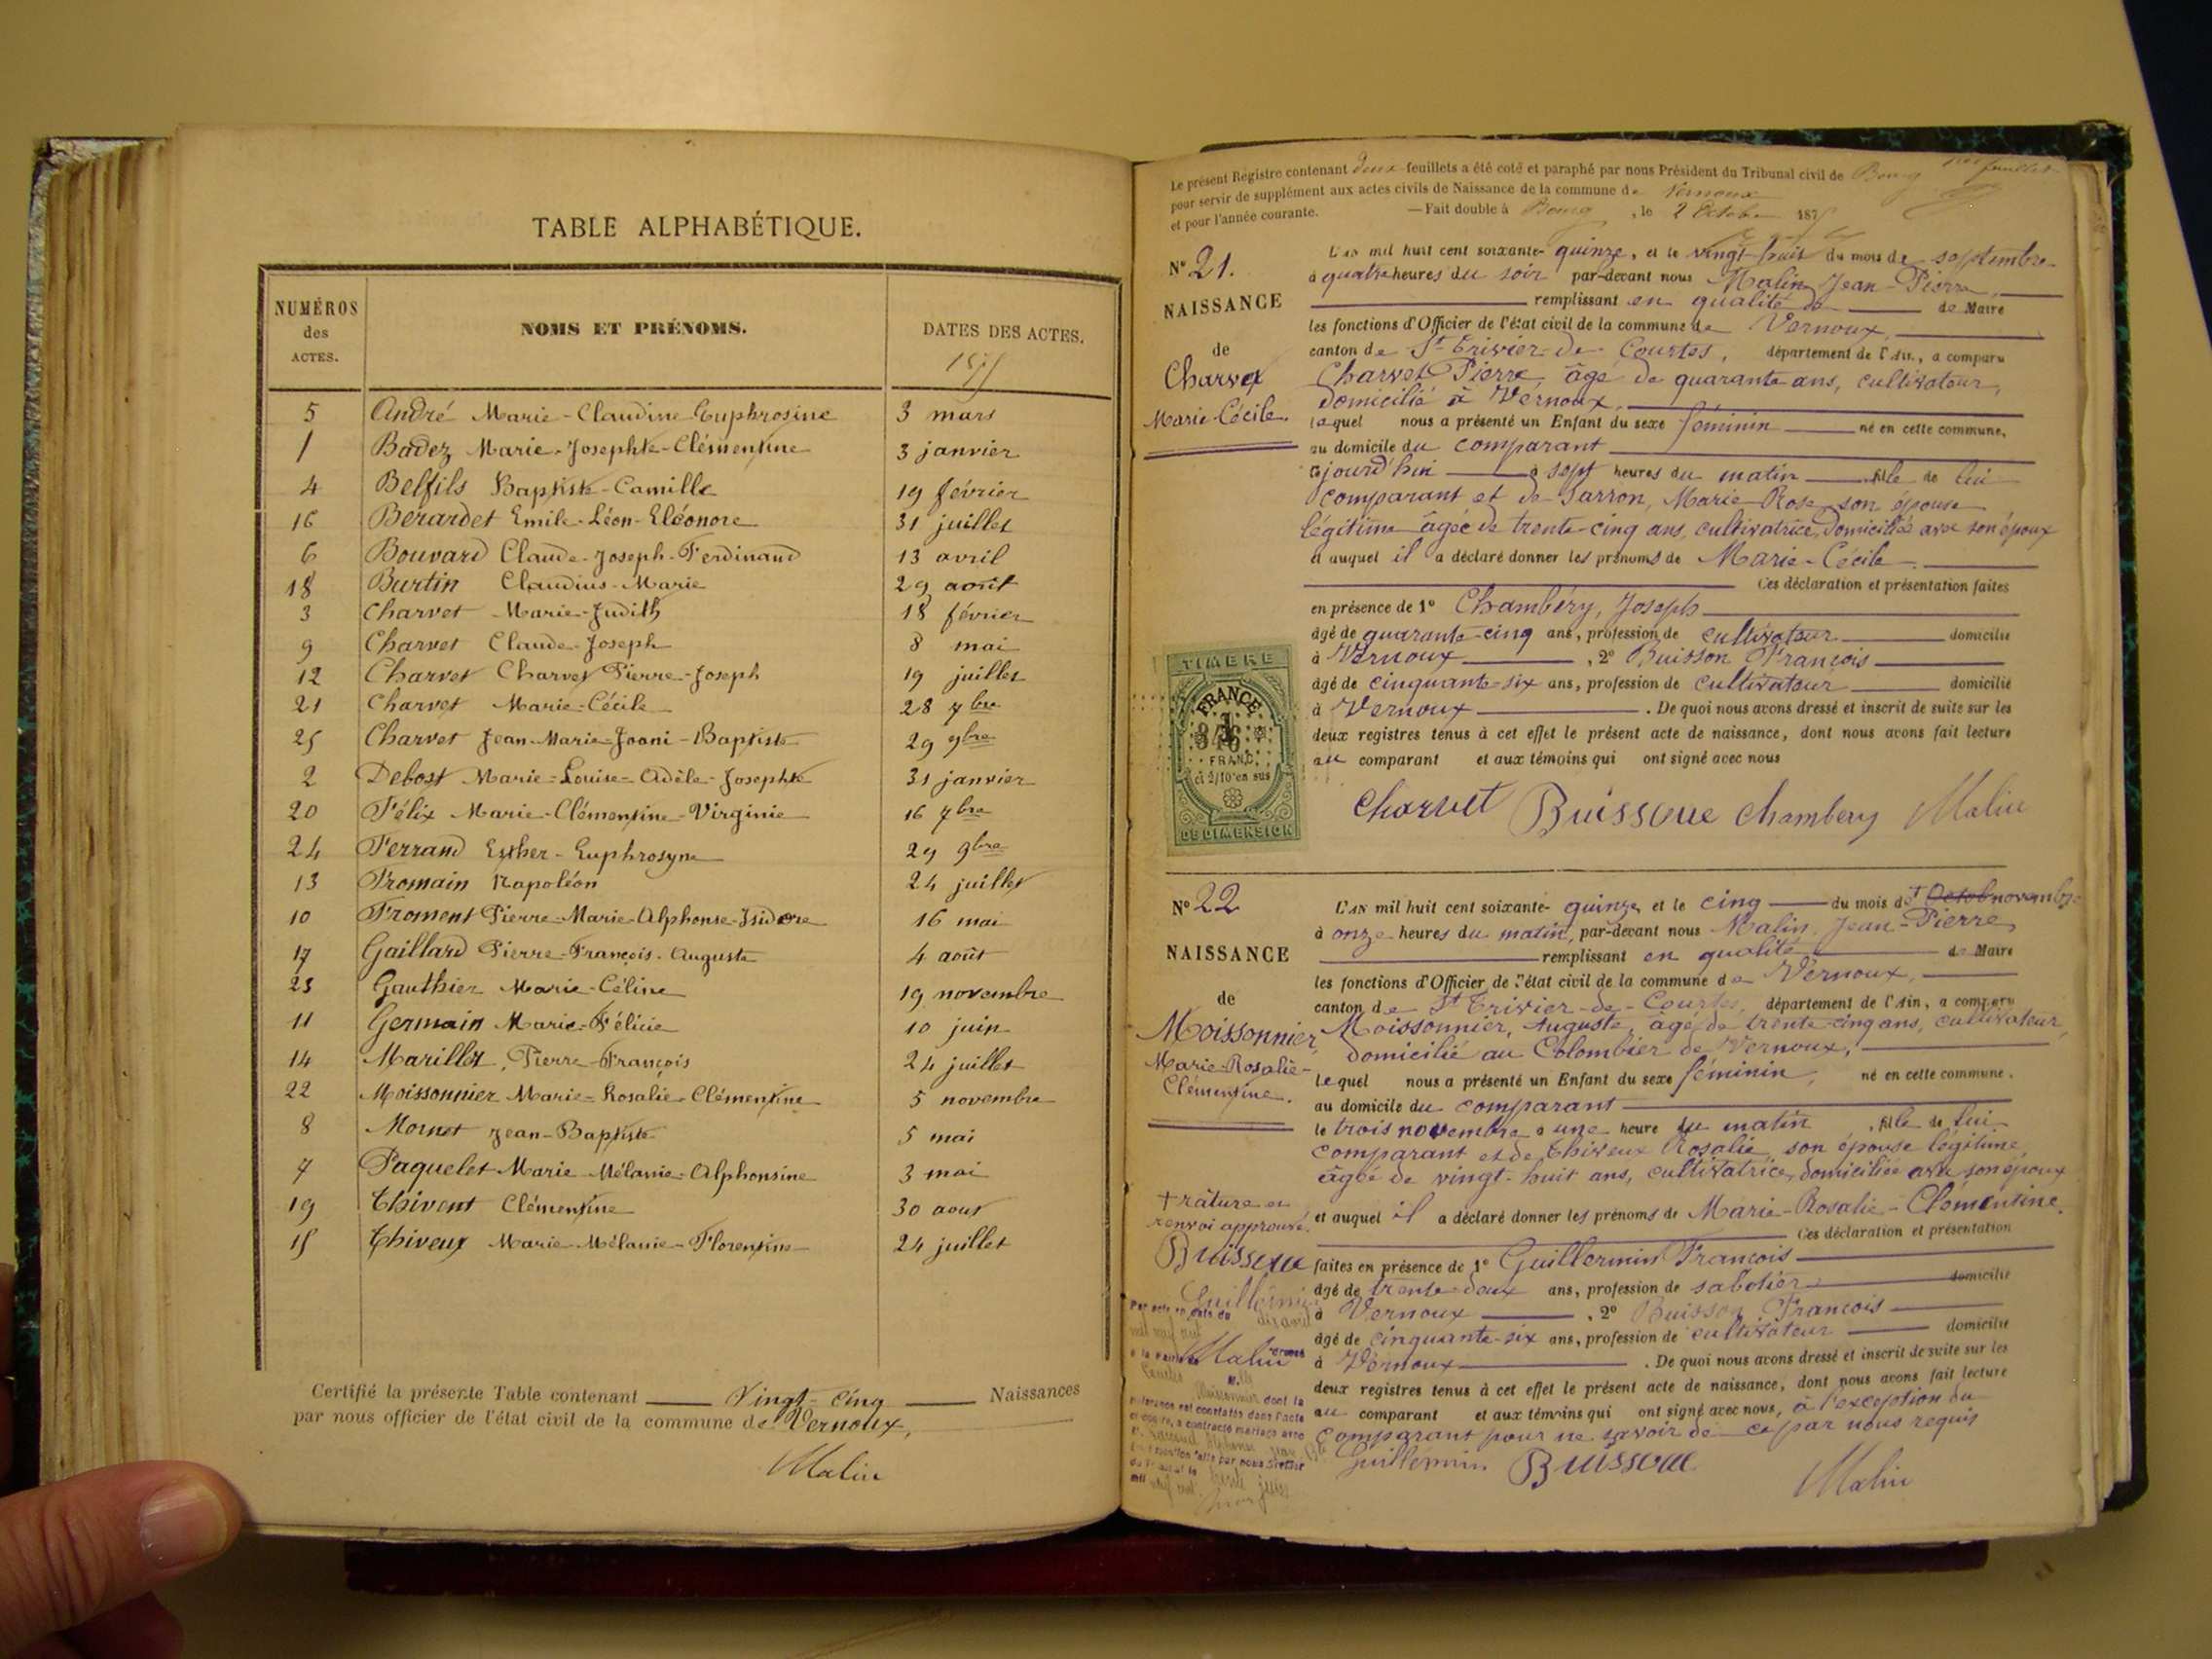 TABLE ALPHABÉTIQUE.
NUMÉROS des ACTES.
NOMS ET PRÉNOMS.
DATES DES ACTES.
1875
5 André Marie-Claudine Euphrosine 3 mars
1 Badez Marie-Josephte-Clémentine 3 janvier
4 Belfils Baptiste-Camille 19 février
16 Bérardet Emile-Léon-Eléonore 31 juillet
6 Bouvard Claude-Joseph-Ferdinand 13 avril
18 Burtin Claudius-Marie 29 août
3 Charvet Marie-Judith 18 février
9 Charvet Claude-Joseph 8 mai
12 Charvet Charvet Pierre-Joseph 19 juillet
21 Charvet Marie-Cécile 28 7bre
25 Charvet Jean-Marie-Joani-Baptiste 29 9bre
2 Debost Marie-Louise-Adèle-Josephte 31 janvier
20 Félix Marie-Clémentine-Virginie 16 7bre
24 Ferrand Esther-Euphrosyne 29 9bre
13 Fromain Napoléon 24 juillet
10 Froment Pierre-Marie-Alphonse-Isidore 16 mai
17 Gaillard Pierre-François-Auguste 4 août
23 Gauthier Marie-Céline 19 novembre
11 Germain Marie-Félicie 10 juin
14 Marillet, Pierre-François 24 juillet
22 Moissonnier Marie-Rosalie-Clémentine 5 novembre
8 Mornet Jean-Baptiste 5 mai
7 Paquelet Marie Mélanie-Alphonsine 3 mai
19 Thivent Clémentine 30 aout
15 Thiveux Marie-Mélanie-Florentine 24 juillet
Certifié la présente Table contenant Vingt-cinq Naissances
par nous officier de l'état civil de la commune de Vernoux,
Malin
Le présent Registre contenant deux feuillets a été coté et paraphé par nous Président du Tribunal civil de Bourg
pour servir de supplément aux actes civils de Naissance de la commune de Vernoux
et pour l'année courante. — Fait double à Bourg, le 2 Octobre 1875
feuillet
N° 21.
NAISSANCE
de
Charvet
Marie-Cécile.
L'AN mil huit cent soixante-quinze, et le vingt-huit du mois de septembre
à quatre heures du soir par-devant nous Malin Jean-Pierre,
remplissant en qualité de Maire
les fonctions d'Officier de l'état civil de la commune de Vernoux,
canton de St Trivier-de-Courtes, département de l'Ain, a comparu
Charvet Pierre, âgé de quarante ans, cultivateur,
domicilié à Vernoux,
lequel nous a présenté un Enfant du sexe féminin né en cette commune,
au domicile du comparant
cejourd'hui à sept heures du matin fille de lui
comparant et de Sarron, Marie-Rose, son épouse
légitime âgée de trente-cinq ans, cultivatrice, domiciliée avec son époux
et auquel il a déclaré donner les prénoms de Marie-Cécile.
Ces déclaration et présentation faites
en présence de 1° Chambéry, Joseph
âgé de quarante-cinq ans, profession de cultivateur domicilié
à Vernoux, 2° Buisson François
âgé de cinquante-six ans, profession de cultivateur domicilié
à Vernoux. De quoi nous avons dressé et inscrit de suite sur les
deux registres tenus à cet effet le présent acte de naissance, dont nous avons fait lecture
au comparant et aux témoins qui ont signé avec nous
TIMBRE
FRANCE
1
FRANC
et 2/10 en sus
DE DIMENSION
Charvet Buissoue Chambery Malin
N° 22
NAISSANCE
de
Moissonnier,
Marie-Rosalie-
Clémentine.
L'AN mil huit cent soixante-quinze, et le cinq du mois de † Octob novembre
à onze heures du matin, par-devant nous Malin, Jean-Pierre,
remplissant en qualité de Maire
les fonctions d'Officier de l'état civil de la commune de Vernoux,
canton de St Trivier-de-Courtes, département de l'Ain, a comparu
Moissonnier, Auguste, âgé de trente-cinq ans, cultivateur,
domicilié au Colombier de Vernoux,
lequel nous a présenté un Enfant du sexe féminin, né en cette commune.
au domicile du comparant
le trois novembre à une heure du matin, fille de lui
comparant et de Thiveux Rosalie, son épouse légitime
âgée de vingt-huit ans, cultivatrice, domiciliée avec son époux
et auquel il a déclaré donner les prénoms de Marie-Rosalie-Clémentine.
Ces déclaration et présentation
faites en présence de 1° Guillermin François
âgé de trente-deux ans, profession de sabotier domicilié
à Vernoux, 2° Buisson François
âgé de cinquante-six ans, profession de cultivateur domicilié
à Vernoux. De quoi nous avons dressé et inscrit de suite sur les
deux registres tenus à cet effet le présent acte de naissance, dont nous avons fait lecture
au comparant et aux témoins qui ont signé avec nous, à l'exception du
comparant pour ne savoir de ce par nous requis
Guillermin Buissoue Malin
† râture et
renvoi approuvé.
Buissoue
Guillermin
Malin
Par acte en date du
dont la
a contracté mariage avec